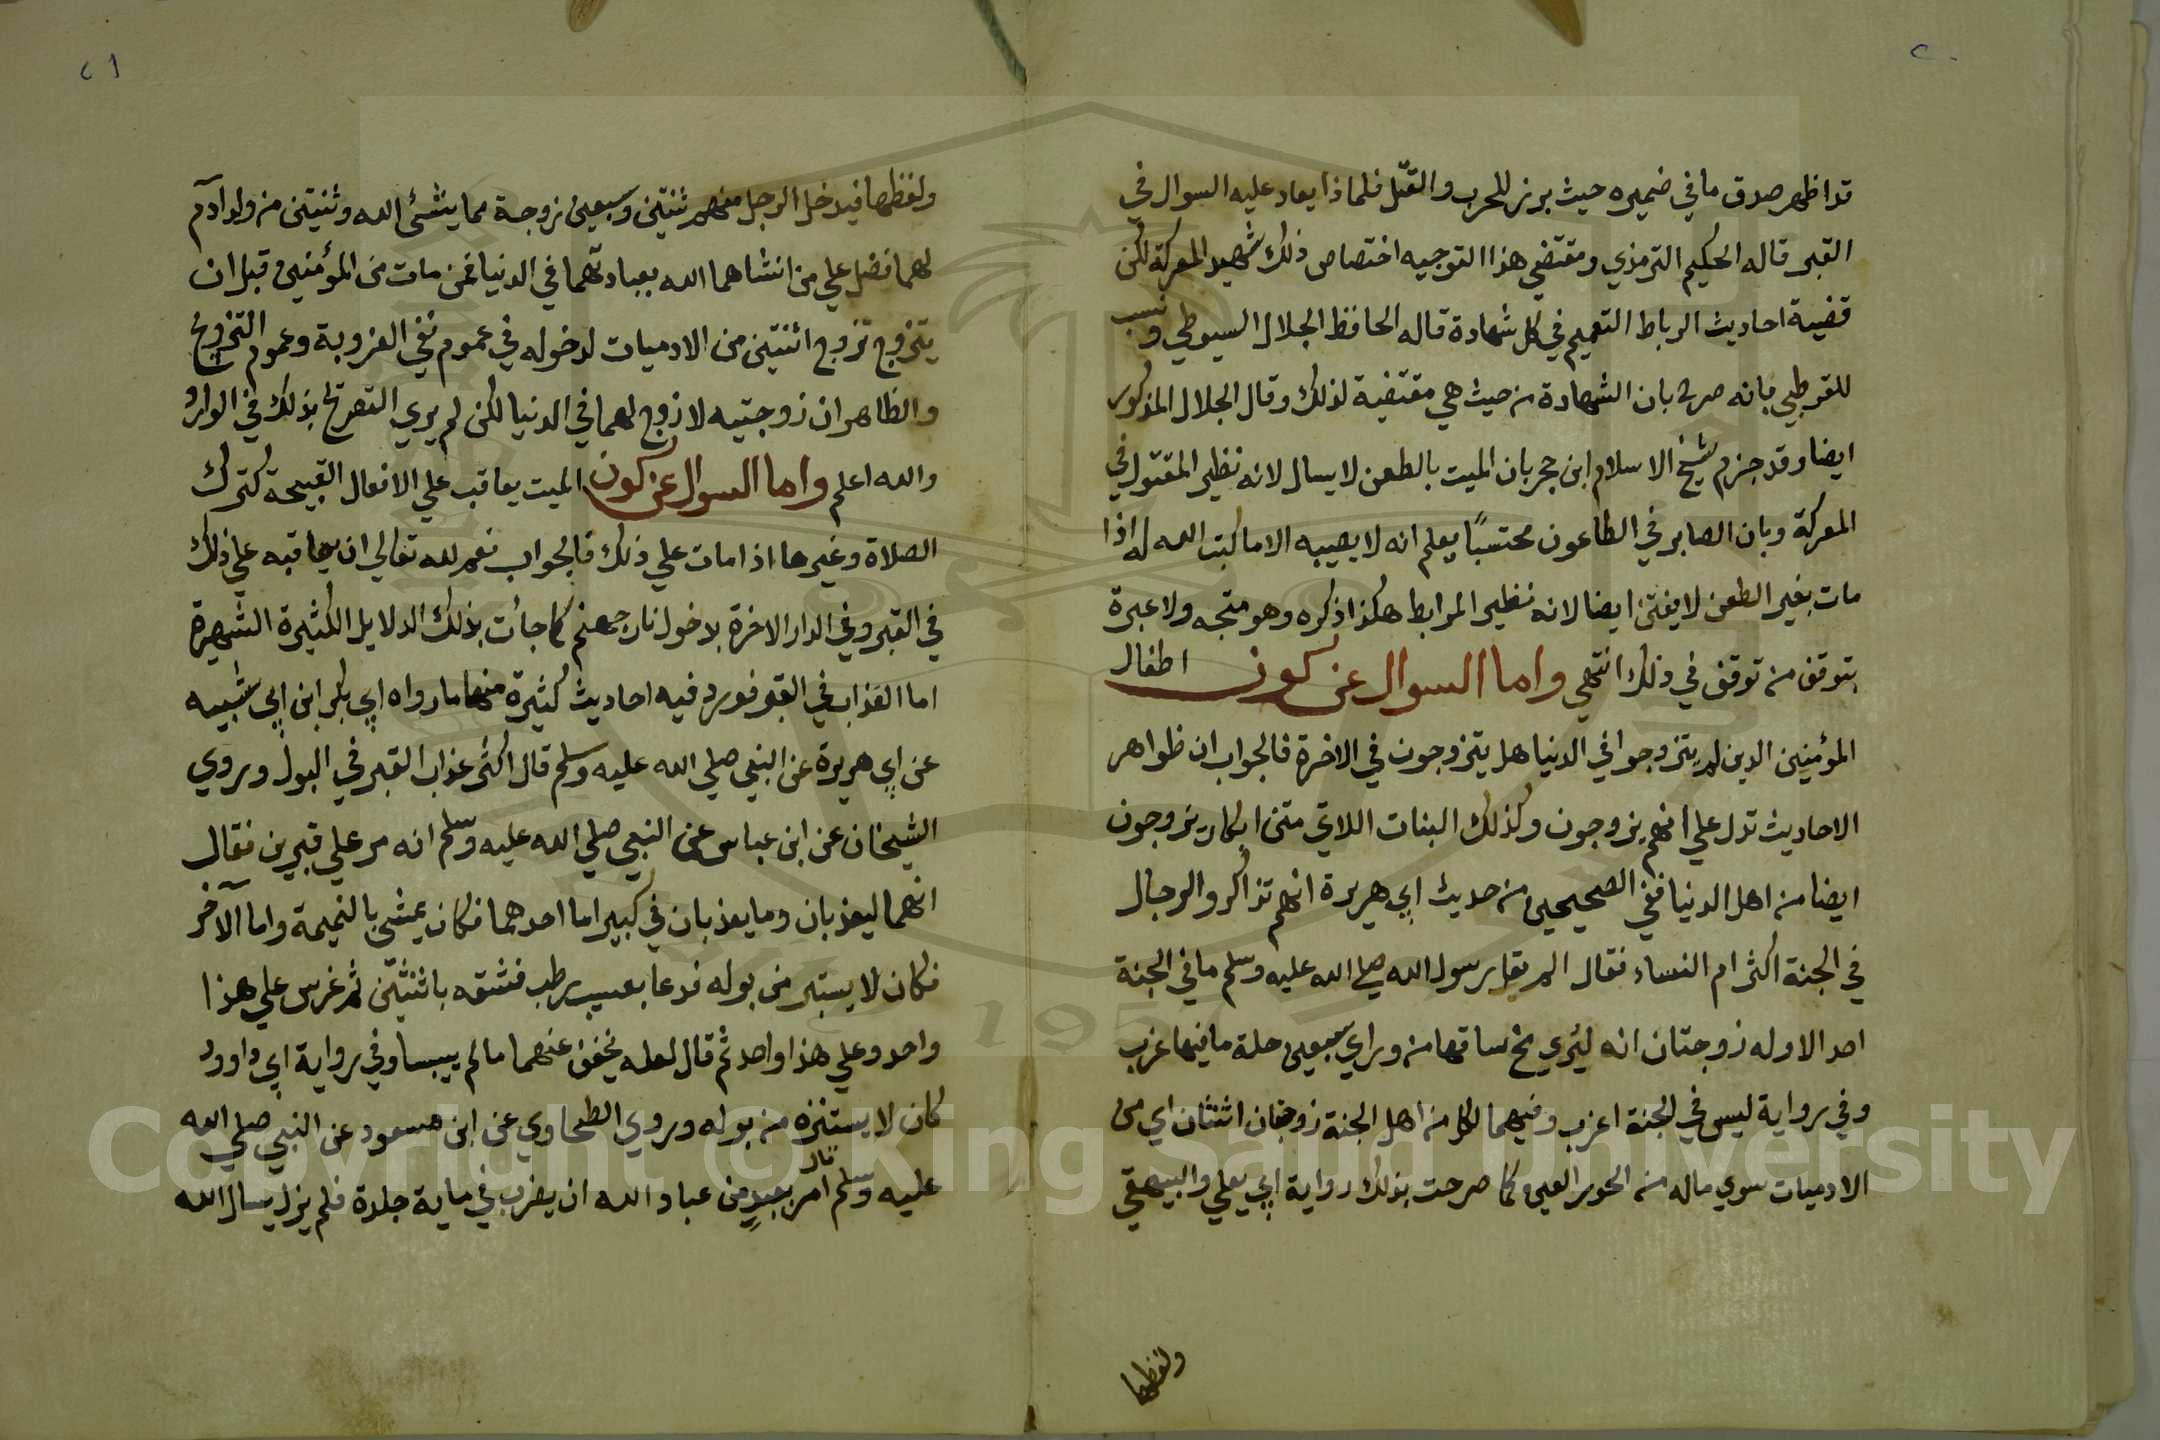 ٢٠
قد اظهر صدق ما في ضميره حيث برز للحرب والقتل فلماذا يعاد عليه السوال في
القبر قاله الحكيم الترمذي ومقتضي هذا التوجيه اختصاص ذلك شهيد المعركة لكن
قضية احاديث الرباط التعميم في كل شهادة قاله الحافظ الجلال السيوطي ونسب
للقرطبي بانه صرح بان الشهادة من حيث هي مقتضية لذلك وقال الجلال المذكور
ايضا وقد جزم شيخ الاسلام ابن حجر بان الميت بالطعن لا يسال لانه نظير المقتول في
المعركة وبان الصابر في الطاعون محتسبًا يعلم انه لا يصيبه الا ما كتب الله له اذا
مات بغير الطعن لا يفتن ايضا لانه نظير المرابط هكذا ذكره وهو متجه ولا عبرة
بتوقف من توقف في ذلك انتهي واما السوال عن كون اطفال
المؤمنين الدين لم يتزوجوا في الدنيا هل يتزوجون في الاخرة فالجواب ان ظواهر
الاحاديث تدل علي انهم يزوجون وكذلك البنات اللاتي متن ابكار يزوجون
ايضا من اهل الدنيا ففي الصحيحين من حديث ابي هريرة انهم تذاكروا الرجال
في الجنة اكثر ام النساء فقال الم يقل رسول الله صلي الله عليه وسلم ما في الجنة
احد الا وله زوجتان انه ليري مخ ساقها من وراي سبعين حلة ما فيها عزب
وفي رواية ليس في الجنة اعزب وفيهما لكل من اهل الجنة زوجتان اثنتان اي من
الادميات سوي ماله من الحور العين كما صرحت بذلك رواية ابي يعلي والبيهقي
ولفظها
٢١
ولفظها فيدخل الرجل منهم ثنتين وسبعين زوجة مما ينشئ الله وثنتين من ولد آدم
لهما فضل علي من انشاهما الله بعبادتهما في الدنيا فمن مات من المؤمنين قبل ان
يتزوج تزوج اثنتين من الادميات لدخوله في عموم نفي العزوبة وعموم التزوج
والظاهر ان زوجتيه لا زوج لهما في الدنيا لكن لم يري التصرح بذلك في الوارد
والله اعلم واما السوال عن كون الميت يعاقب علي الافعال القبيحة كترك
الصلاة وغيرها اذا مات علي ذلك فالجواب نعم لله تعالي ان يعاقبه علي ذلك
في القبر وفي الدار الاخرة بدخول نار جهنم كما جأت بذلك الدلايل الكثيرة الشهيرة
اما العذاب في القبر فورد فيه احاديث كثيرة منها ما رواه ابي بكر ابن ابي شيبه
عن ابي هريرة عن النبي صلي الله عليه وسلم قال اكثر عذاب القبر في البول وروي
الشيخان عن ابن عباس عن النبي صلي الله عليه وسلم انه مر علي قبرين فقال
انهما ليعذبان وما يعذبان في كبير اما احدهما فكان يمشي بالنميمة واما الآخر
فكان لا يستبر من بوله فدعا بعسيب رطب فشقه باثنتين ثم غرس علي هذا
واحد وعلي هذا واحد ثم قال لعله يخفف عنهما ما لم ييبسا وفي رواية ابي داوود
كان لا يستنزه من بوله وروي الطحاوي عن ابن مسعود عن النبي صلي الله
عليه وسلم قال امر بعبدٍ من عباد الله ان يضرب في ماية جلدة فلم يزل يسال الله
Copyright © King Saud University
1957